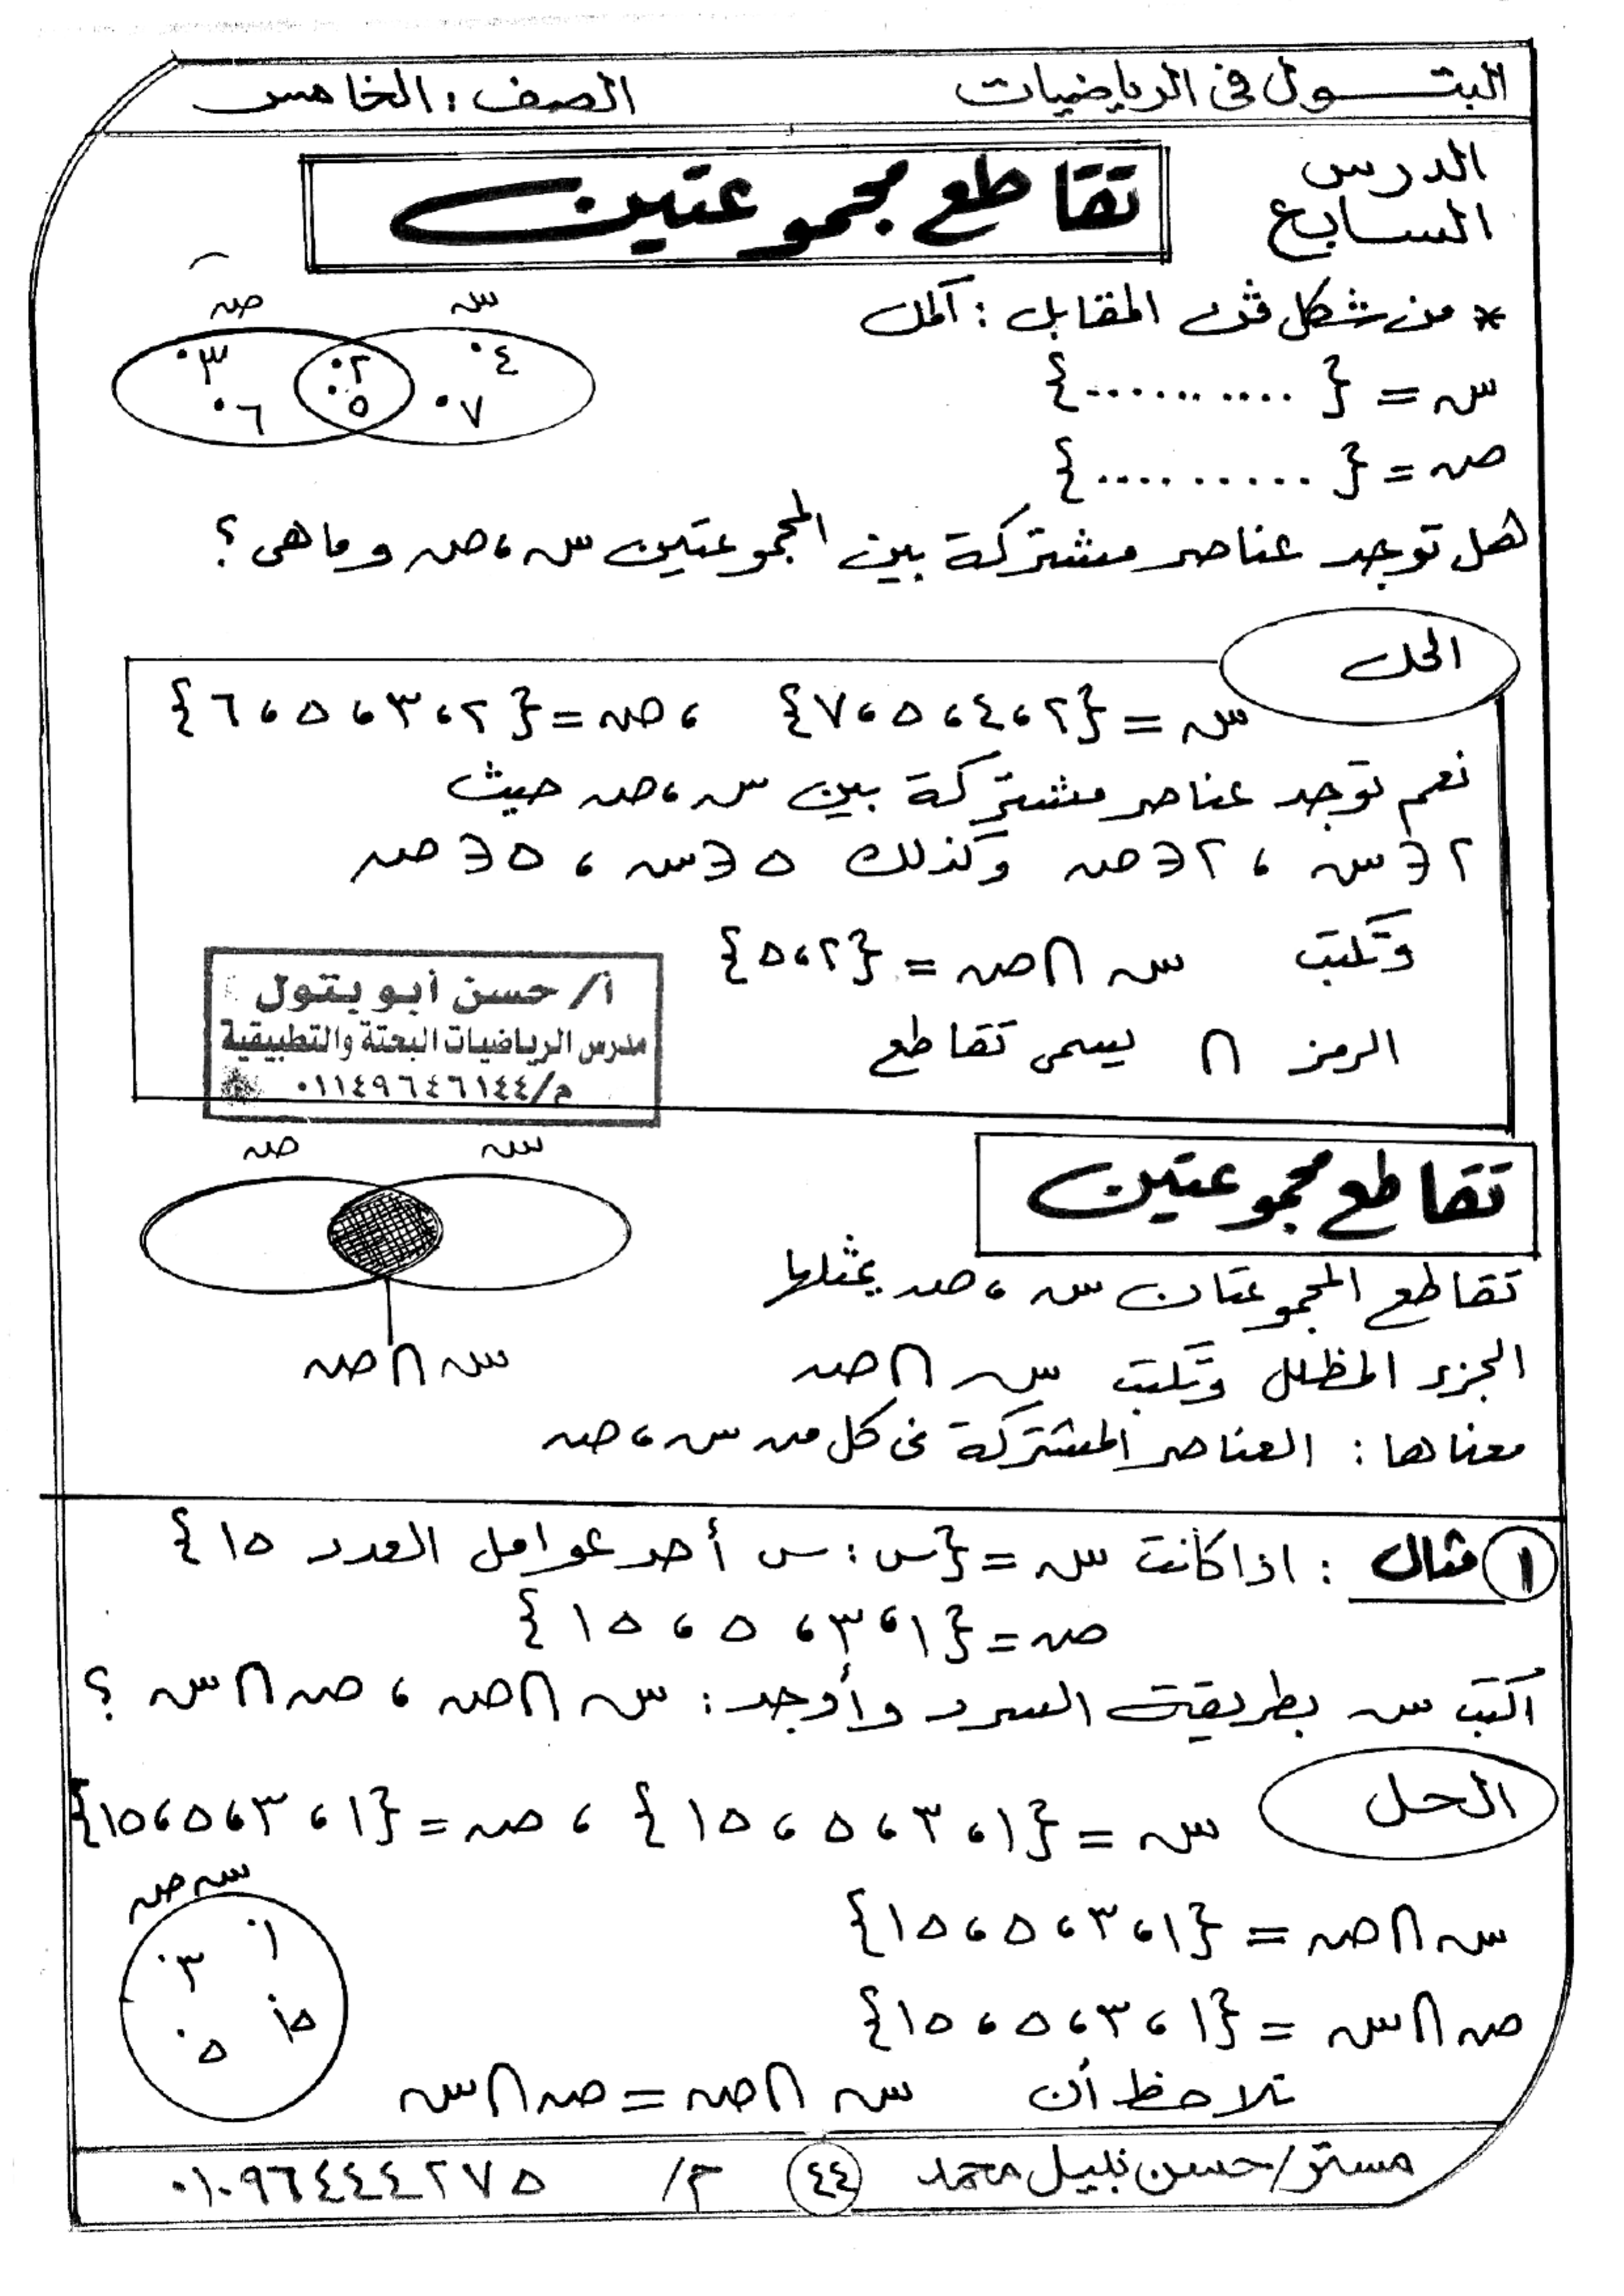 البتـــول في الرياضيات
الصف : الخامس
الدرس السابع
تقاطع مجموعتين
* من شكل ڤن المقابل : أكمل
س = { .......... }
ص = { .......... }
س ص
٤ ٧ ٢ ٥ ٣ ٦
هل توجد عناصر مشتركة بين المجموعتين س ، ص وما هى ؟
الحل
س = {٢ ، ٤ ، ٥ ، ٧} ، ص = {٢ ، ٣ ، ٥ ، ٦}
نعم توجد عناصر مشتركة بين س ، ص حيث
٢ ∈ س ، ٢ ∈ ص وكذلك ٥ ∈ س ، ٥ ∈ ص
وتكتب س ∩ ص = {٢ ، ٥}
الرمز ∩ يسمى تقاطع
أ/ حسن أبو بتول
مدرس الرياضيات البحتة والتطبيقية
م/٠١١٤٩٦٤٦١٤٤
تقاطع مجموعتين
س ص
س ∩ ص
تقاطع المجموعتان س ، ص يمثلها
الجزء المظلل وتكتب س ∩ ص
معناها : العناصر المشتركة فى كل من س ، ص
١ مثال : اذا كانت س = {س : س أحد عوامل العدد ١٥}
ص = {١ ، ٣ ، ٥ ، ١٥}
أكتب س بطريقة السرد وأوجد : س ∩ ص ، ص ∩ س ؟
الحل
س = {١ ، ٣ ، ٥ ، ١٥} ، ص = {١ ، ٣ ، ٥ ، ١٥}
س ∩ ص = {١ ، ٣ ، ٥ ، ١٥}
ص ∩ س = {١ ، ٣ ، ٥ ، ١٥}
س ص
١ ٣ ١٥ ٥
تلاحظ أن س ∩ ص = ص ∩ س
مستر/ حسن نبيل محمد ٤٤ م/ ٠١٠٩٦٤٤٤٢٧٥